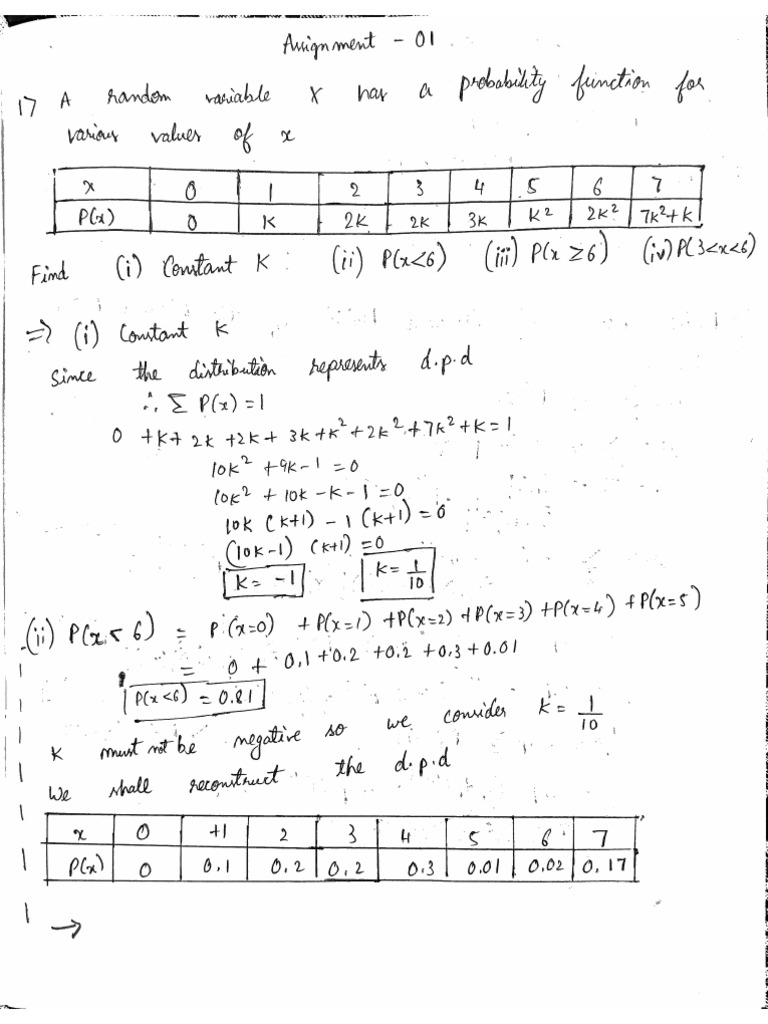 Assignment - 01
1) A random variable X has a probability function for
various values of x
x 0 1 2 3 4 5 6 7
P(x) 0 K 2K 2K 3K K² 2K² 7K²+K
Find (i) Constant K : (ii) P(x<6) (iii) P(x ≥6) (iv) P(3<x<6)
=> (i) Constant K
Since the distribution represents d.p.d
∴ Σ P(x) = 1
0 + K + 2K + 2K + 3K + K² + 2K² + 7K² + K = 1
10K² + 9K - 1 = 0
10K² + 10K - K - 1 = 0
10K (K+1) - 1 (K+1) = 0
(10K-1) (K+1) = 0
K = -1 K = 1/10
(ii) P(x < 6) = P(x=0) + P(x=1) + P(x=2) + P(x=3) + P(x=4) + P(x=5)
= 0 + 0.1 + 0.2 + 0.2 + 0.3 + 0.01
P(x<6) = 0.81
K must not be negative so we consider K = 1/10
We shall reconstruct the d.p.d
x 0 +1 2 3 4 5 6 7
P(x) 0 0.1 0.2 0.2 0.3 0.01 0.02 0.17
→